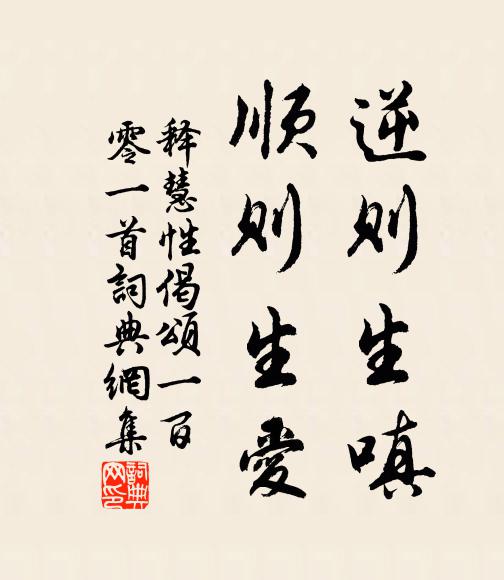 逆则生嗔
顺则生愛
释慧性偈颂一百
零一首词典網集
詞典网印